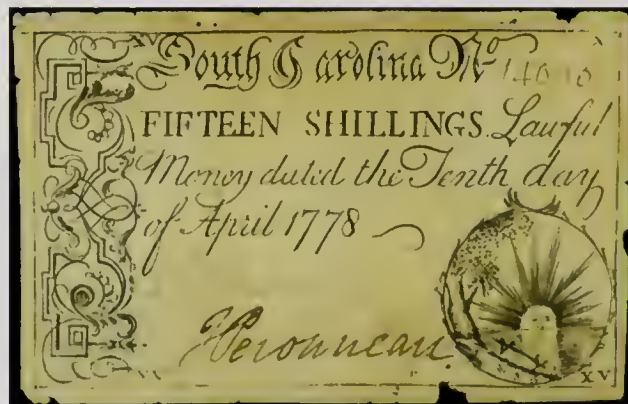 XV X
South Carolina No
FIFTEEN SHILLINGS. Lawful
Money dated the Tenth day
of April 1778
HPeronneau.
XV